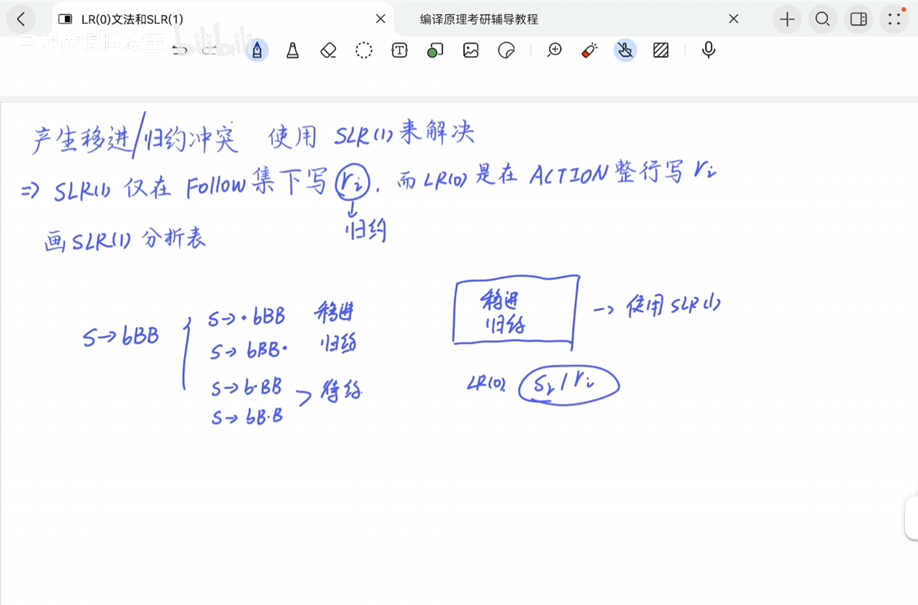 LR(0)文法和SLR(1)
编译原理考研辅导教程
bilibili
产生移进/归约冲突 使用 SLR(1)来解决
=> SLR(1) 仅在 Follow集下写 ri. 而LR(0)是在 ACTION整行写 ri
归约
画SLR(1) 分析表
S→bBB
S→·bBB 移进
S→bBB· 归约
S→b·BB
S→bB·B
待约
移进
归约
→ 使用SLR(1)
LR(0)
/ri